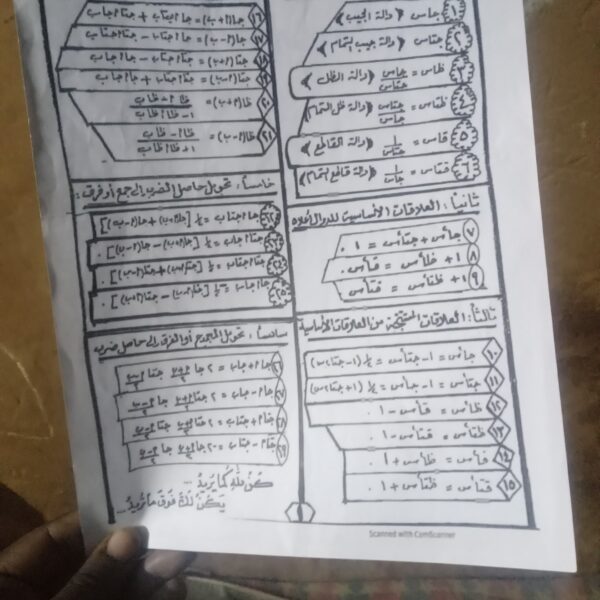 ١ جاس (دالة الجيب)
٢ جتاس (دالة جيب التمام)
٣ ظاس = جاس/جتاس (دالة الظل)
٤ ظتاس = جتاس/جاس (دالة ظل التمام)
٥ قاس = ١/جتاس (دالة القاطع)
٦ قتاس = ١/جاس (دالة قاطع تمام)
ثانياً: العلاقات الأساسية للدوال أعلاه
٧ جا²س + جتا²س = ١ .
٨ ١ + ظا²س = قا²س .
٩ ١ + ظتا²س = قتا²س
ثالثاً: العلاقات المستنتجة من العلاقات الأساسية
١٠ جا²س = ١ - جتا²س = ½ (١ - جتا٢س)
١١ جتا²س = ١ - جا²س = ½ (١ + جتا٢س)
١٢ ظا²س = قا²س - ١ .
١٣ ظتا²س = قتا²س - ١ .
١٤ قا²س = ظا²س + ١ .
١٥ قتا²س = ظتا²س + ١ .
١٦ جا(أ+ب) = جاأجتاب + جتاأجاب
١٧ جا(أ-ب) = جاأجتاب - جتاأجاب
١٨ جتا(أ+ب) = جتاأجتاب - جاأجاب
١٩ جتا(أ-ب) = جتاأجتاب + جاأجاب
٢٠ ظا(أ+ب) = ظاأ+ظاب / ١-ظاأظاب
٢١ ظا(أ-ب) = ظاأ-ظاب / ١+ظاأظاب
خامساً: تحويل حاصل الضرب إلى جمع أو فرق:
٢٢ جاأجتاب = ½ [جا(أ+ب) + جا(أ-ب)]
٢٣ جتاأجاب = ½ [جا(أ+ب) - جا(أ-ب)] .
٢٤ جتاأجتاب = ½ [جتا(أ+ب) + جتا(أ-ب)] .
٢٥ جاأجاب = ½ [جتا(أ-ب) - جتا(أ+ب)] .
سادساً: تحويل المجموع أو الفرق إلى حاصل ضرب
٢٦ جاأ + جاب = ٢ جا أ+ب/٢ جتا أ-ب/٢
٢٧ جاأ - جاب = ٢ جتا أ+ب/٢ جا أ-ب/٢
٢٨ جتاأ + جتاب = ٢ جتا أ+ب/٢ جتا أ-ب/٢
٢٩ جتاأ - جتاب = -٢ جا أ+ب/٢ جا أ-ب/٢
كُنْ لله كما يُريدُ ...
يَكُنْ لَكَ فَوْقَ ما تُريدُ ...
Scanned with CamScanner